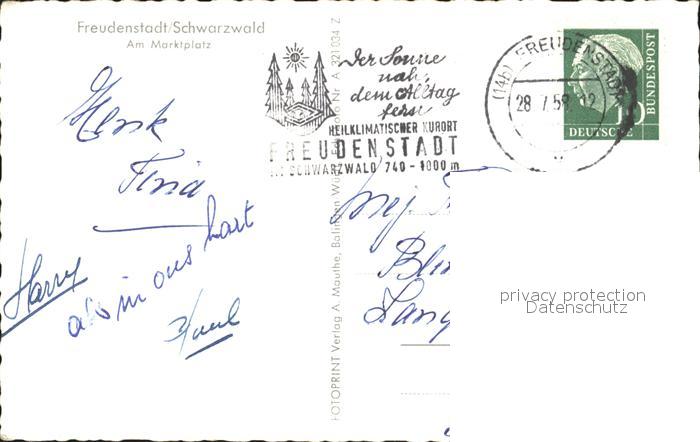 Freudenstadt/Schwarzwald
Am Marktplatz
Der Sonne
nah,
dem Alltag
fern
HEILKLIMATISCHER KURORT
FREUDENSTADT
IM SCHWARZWALD 740-1000 m
(14b) FREUDENSTADT
28 7 58 12
DEUTSCHE
BUNDESPOST
10
Henk
Tina
Harry
als in ons hart
FOTOPRINT Verlag A. Mauthe, Balingen
A 321 034 Z
Mej.
privacy protection
Datenschutz